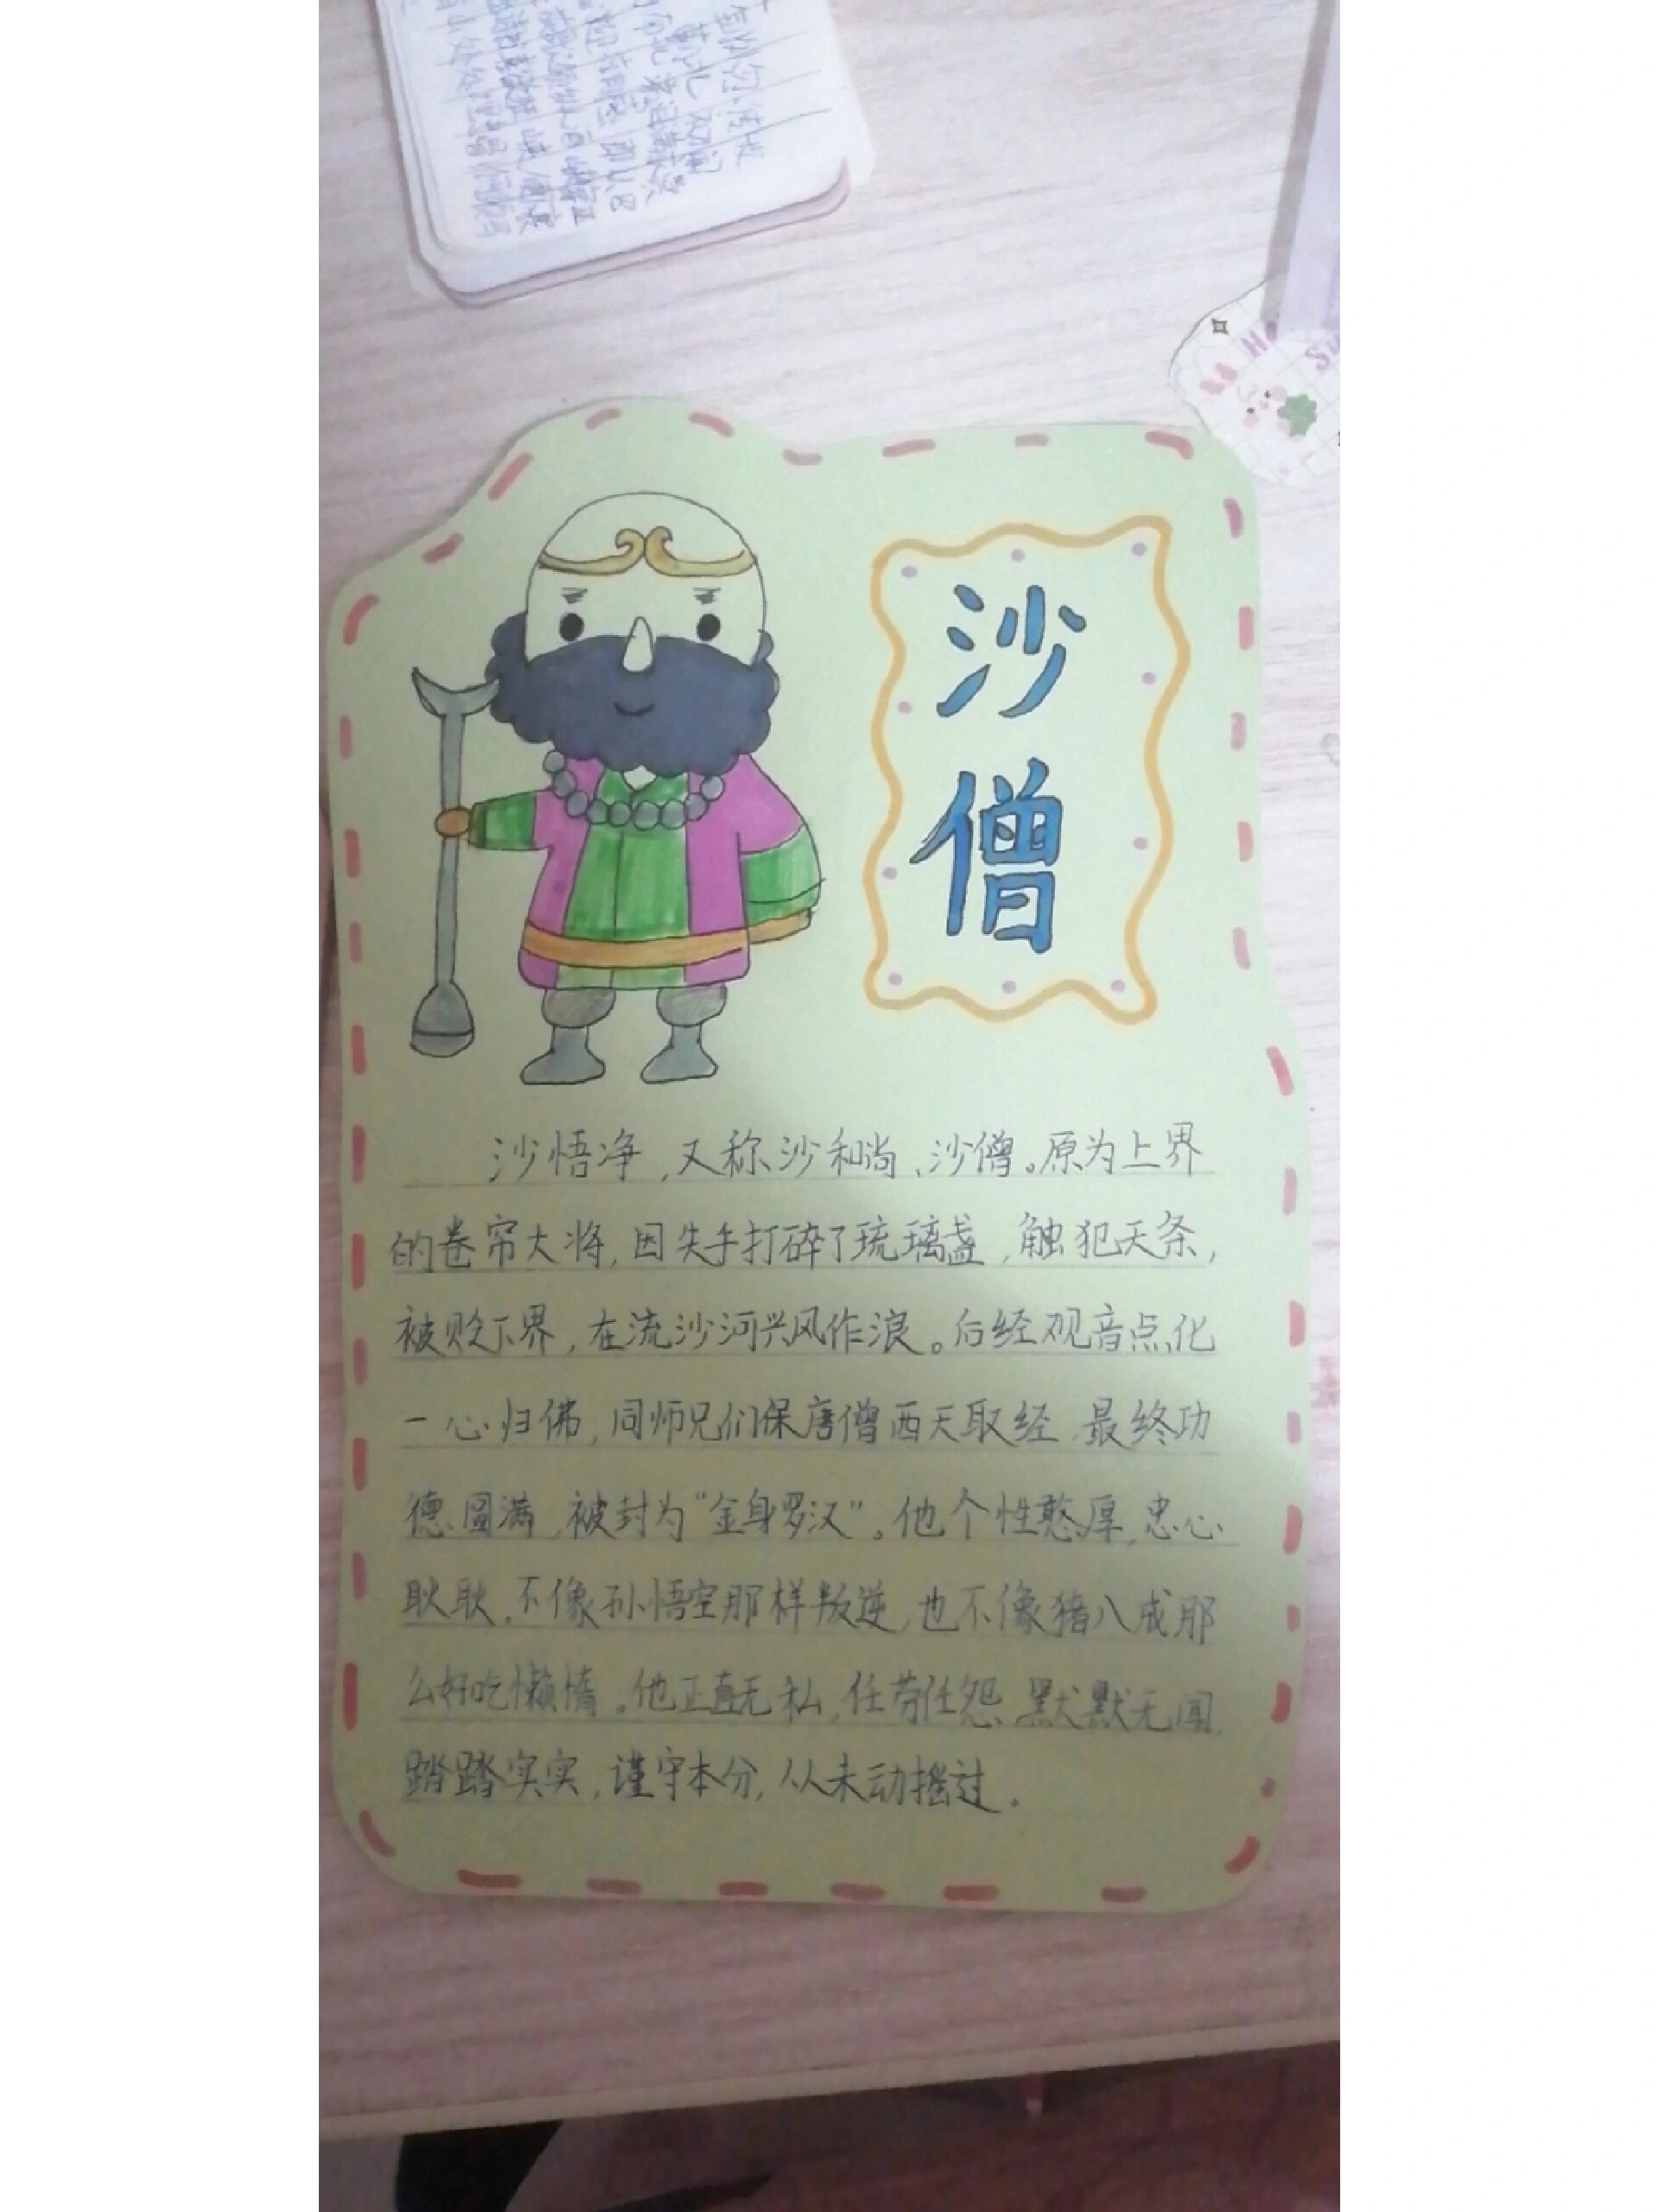 沙
僧
沙悟净,又称沙和尚、沙僧。原为上界
的卷帘大将,因失手打碎了琉璃盏,触犯天条,
被败下界,在流沙河兴风作浪。后经观音点化
一心归佛,同师兄们保唐僧西天取经,最终功
德圆满,被封为“金身罗汉”。他个性憨厚,忠心
耿耿。不像孙悟空那样叛逆,也不像猪八戒那
么好吃懒惰。他正直无私,任劳任怨,默默无闻,
踏踏实实,谨守本分,从未动摇过。